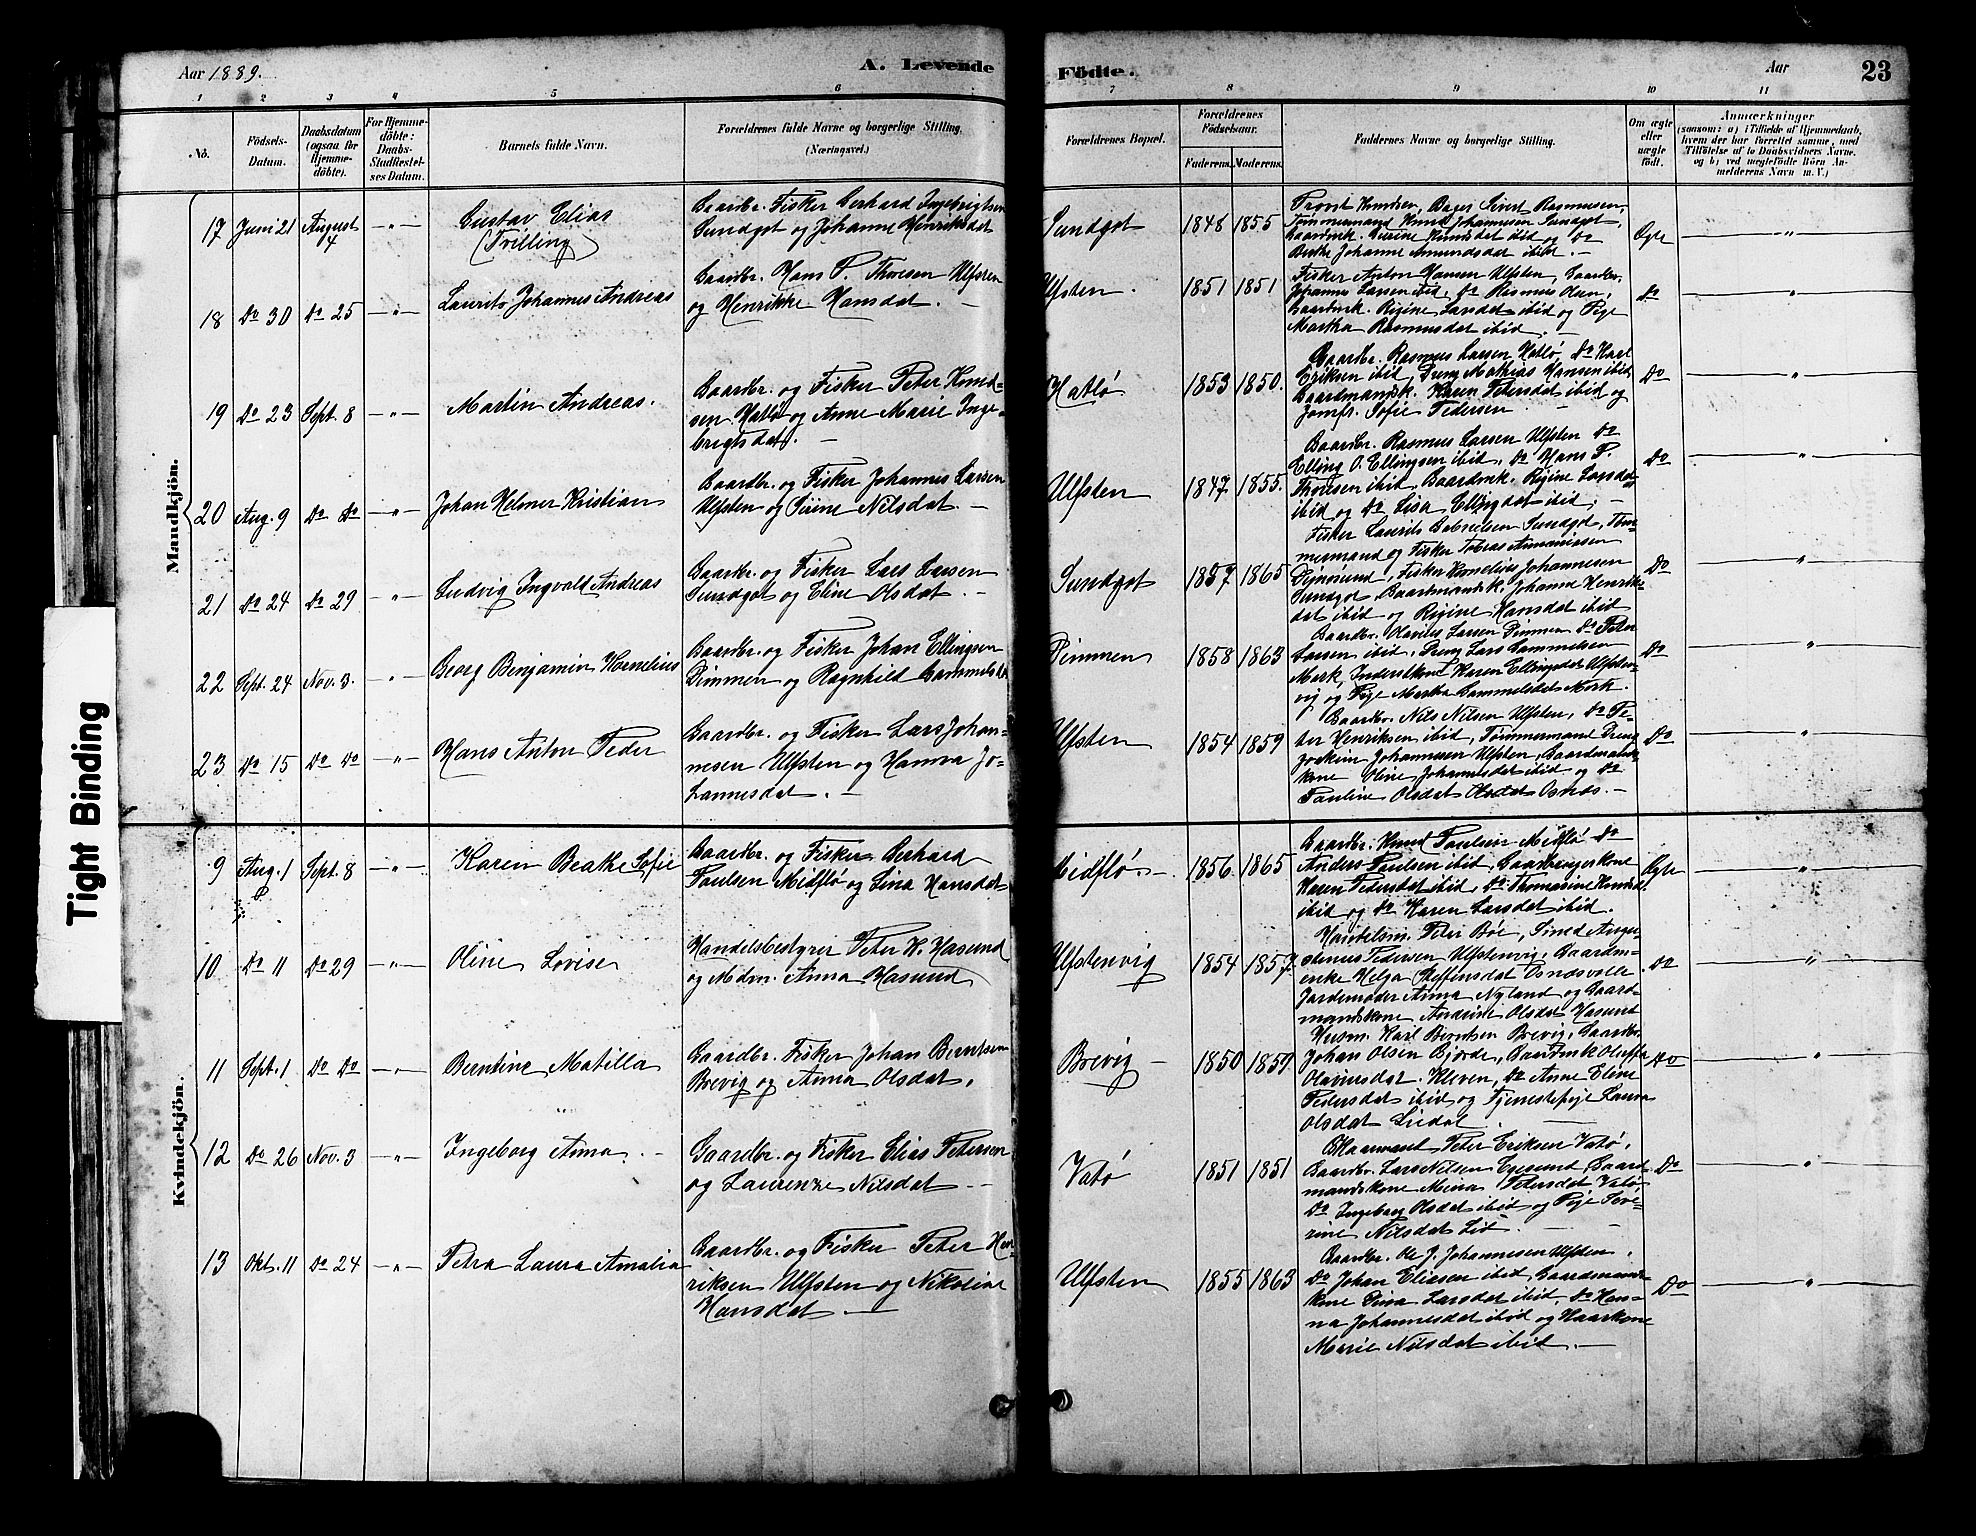 Aar 1889.
A. Levende
Födte.
Aar
23
1 2 3 4 5 6
7 8 9 10 11
No.
Födsels-
Datum.
Daabsdatum
(ogsaa for
Hjemme-
döbte).
For Hjemme-
döbte:
Daabs-
Stadfæstel-
ses Datum.
Barnets fulde Navn.
Forældrenes fulde Navne og borgerlige Stilling.
(Næringsvei.)
Forældrenes Bopæl.
Forældrenes
Födselsaar.
Faderens. Moderens.
Faddernes Navne og borgerlige Stilling.
Om ægte
eller
uægte
födt.
Anmærkninger
(saasom: a) i Tilfælde af Hjemmedaab,
hvem der har forrettet samme, med
Tilföielse af to Daabsvidners Navne,
og b) ved uægtefödte Börn An-
melderens Navn m. V.)
Mandkjön.
17 Juni 21 August 4 -"- Gustav Elias
(Trilling)
Gaardbr. Fisker Berhard Ingebrigtsen
Sundgot og Johanne Henriksdat
Sundgot 1848 1855
Provst Knudsen, Bager Sivert Rasmussen,
Tømmermand Knud Johannesen Sundgot,
Gaardmk. Gurine Knudsdat ibid og Do
Berthe Johanne Amundsdat ibid. -
Ægte - " -
18 Do 30 Do 25 -"- Laurits Johannes Andreas
Gaardbr. Hans P. Thoresen Ulfsten
og Henrikke Hansdat. -
Ulfsten. 1851 1851
Fisker Anton Hansen Ulfsten, Gaardbr.
Johannes Larsen ibid, Do Rasmus Olsen,
Gaardmk. Rigine Larsdat ibid og Pige
Martha Rasmusdat ibid. -
Do "
19 Do 23 Sept. 8 -"- Martin Andreas.
Gaardbr. og Fisker Peter Knud-
sen Hatlø og Anne Marie Inge-
brigtsdat. -
Hatlø 1853 1850.
Gaardbr. Rasmus Larsen Hatlø, Do Karl
Eriksen ibid, Dreng Mathias Hansen ibid,
Gaardmandsk. Karen Petersdat ibid og
Jomfr. Sofie Pedersen -
Do "
20 Aug. 9 Do Do -"- Johan Helmer Kristian
Gaardbr. og Fisker Johannes Larsen
Ulfsten og Sirine Nilsdat. -
Ulfsten 1847 1855.
Gaardbr. Rasmus Larsen Ulfsten Do
Elling O. Ellingsen ibid, Do Hans P.
Thoresen ibid, Gaardmk. Rigine Larsdat
ibid og Do Lisa Ellingsdat ibid,
Do "
21 Do 24 Do 29 -"- Ludvig Ingvald Andreas
Gaardbr. og Fisker Lars Larsen
Sundgot og Eline Olsdat. -
Sundgot 1857 1865
Fisker Laurits Gabrielsen Sundgot, Tøm-
mermand og Fisker Tobias Ananiassen
Dimøsund, Fisker Kornelius Johannesen
Sundgot, Gaardmandsk. Johanne Henriks-
dat ibid og Rigine Hansdat ibid
Do "
22 Sept. 24 Nov. 3. -"- Georg Benjamin Kornelius
Gaardbr. og Fisker Johan Ellingsen
Dimmen og Ragnhild Gammelsdat
Dimmen 1858 1863
Gaardbr. Olavius Larsen Dimmen Do Peter
Larsen ibid, Dreng Lars Gammelsen
Mork, Inderstkone Karen Ellingsdat Ulfsten-
vig og Pige Martha Gammelsdat Mork.
Do "
23 Do 15 Do Do -"- Hans Anton Peder
Gaardbr. og Fisker Lars Johan-
nesen Ulfsten og Hanna Jo-
hannesdat. -
Ulfsten 1854 1859
Gaardbr. Nils Nilsen Ulfsten, Do Pe-
ter Henriksen ibid, Tømmermand Dreng
Joakim Johannesen Ulfsten, Gaardmands-
kone Oline Johannesdat ibid og Do
Pauline Olsdat Osnes. -
Do "
Kvindekjön.
9 Aug. 1 Sept. 8 -"- Karen Beathe Sofie
Gaardbr. og Fisker Berhard
Paulsen Midflø og Lina Hansdat
Midflø - 1856 1865
Gaardbr. Knud Paulsen Midflø Do
Anders Paulsen ibid, Gaardbrugerkone
Karen Pedersdat ibid, Do Thomasine Knudsd.
ibid og Do Karen Larsdat ibid.
Ægte "
10 Do 11 Do 29 -"- Oline Lovise
Handelsbestyrer Peter K. Hasund
og Mdm. Anna Hasund
Ulfstenvig 1854 1857
Handelsm. Peter Bøe, Smed Auge-
stinus Pedersen Ulfstenvig, Gaardm-
enke Helga Steffensdat Osnesvolle
Jordemoder Anna Nyland og Gaard-
mandskone Andrine Olsdat Hasund
Do "
11 Sept. 1 Do Do -"- Berntine Matilla
Gaardbr. Fisker Johan Berntsen
Brevig og Anna Olsdat.
Brevig - 1850 1859
Husm. Karl Berntsen Brevig, Gaardbr.
Johan Olsen Bjørde, Gaardmk Oluffa
Olavusdat. Kleven, Do Anne Eline
Pedersdat ibid og Tjenestepige Laura
Olsdat Liedal.
Do "
12 Do 26 Nov. 3 -"- Ingeborg Anna. -
Gaardbr. og Fisker Elias Petersen
og Laurenze Nilsdat -
Vatø 1851 1851
Kaarmand Peter Eriksen Vatø,
Gaardbr. Lars Nilsen Eggesund Gaard-
mandskone Mina Petersdat Vatø
Do Ingeborg Olsdat ibid og Pige Seve-
rine Nilsdat Lid -
Do "
13 Okt. 11 Do 24 -"- Petra Laura Amalia
Gaardbr. og Fisker Peter Hen-
riksen Ulfsten og Nikoline
Hansdat -
Ulfsten 1855 1863
Gaardbr. Ole J. Johannesen Ulfsten,
Do Johan Eliasen ibid, Gaardmands-
kone Dina Larsdat ibid, Do Han-
na Johannesdat ibid og Kaarkone
Marie Nilsdat ibid. -
Do "
Tight Binding